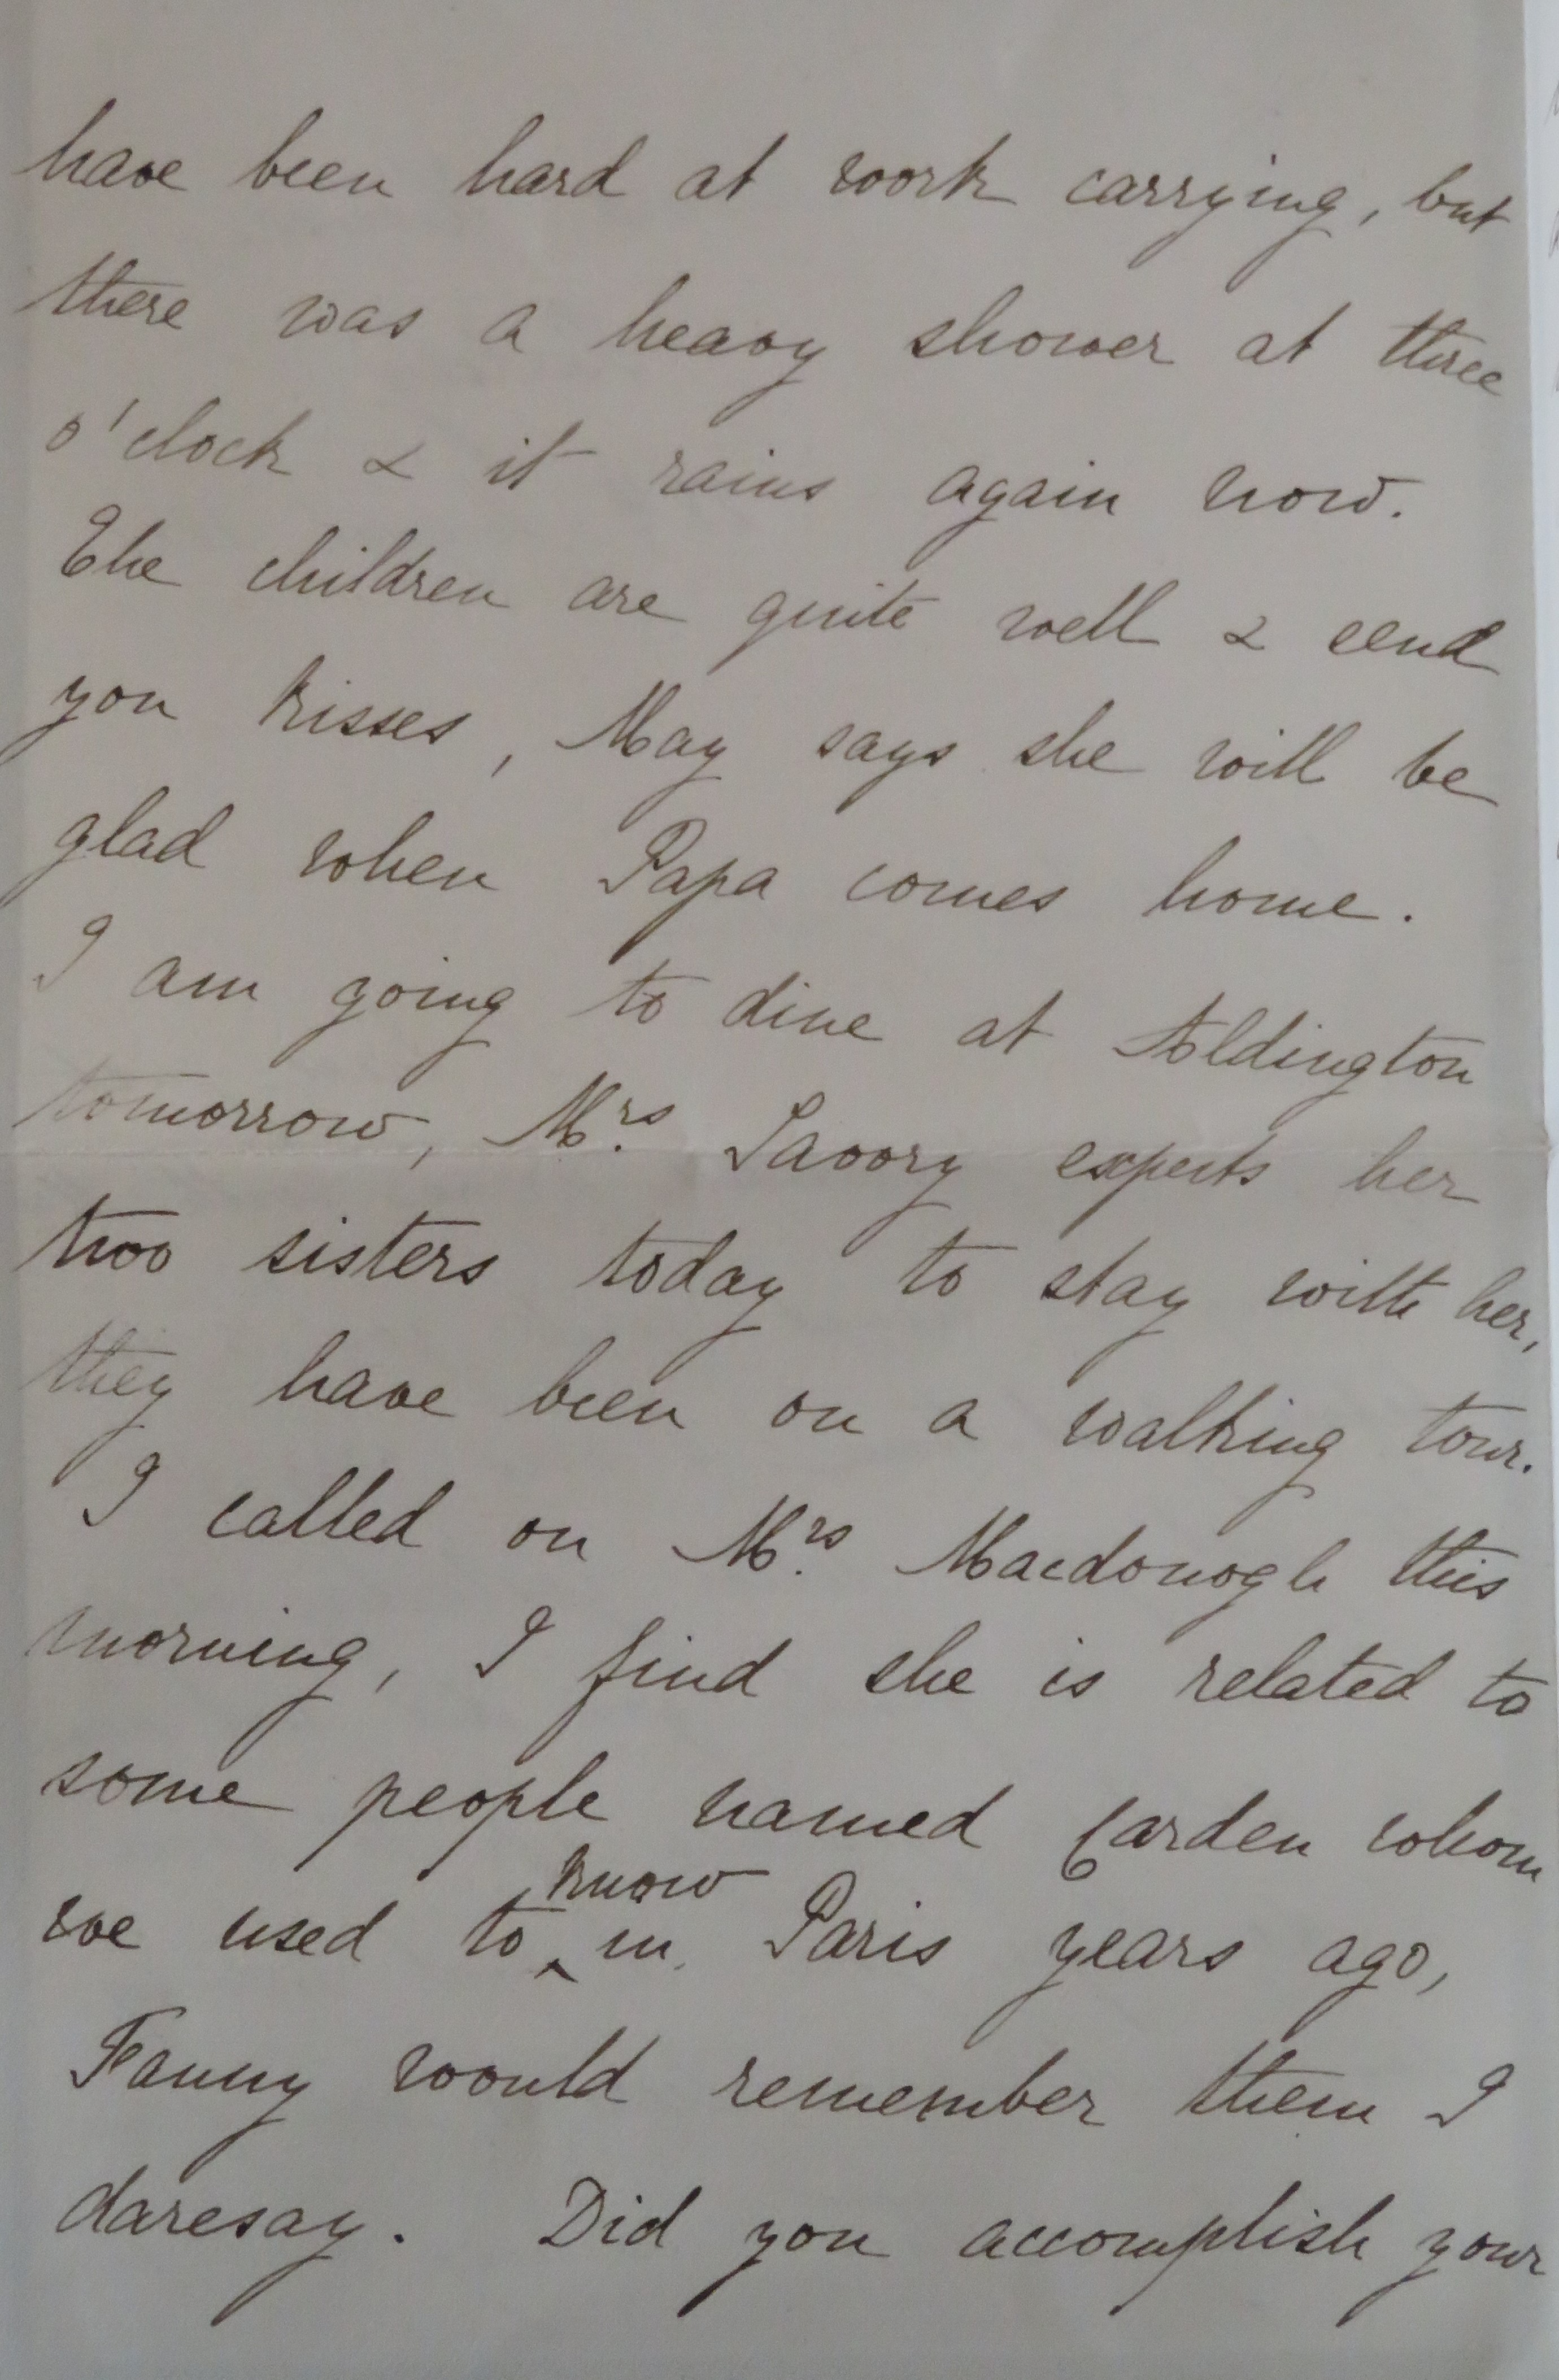 have been hard at work carrying, but
there was a heavy shower at three
o'clock & it rains again now.
The children are quite well & send
you kisses, May says she will be
glad when Papa comes home.
I am going to dine at Aldington
tomorrow, Mrs. Savory expects her
two sisters today to stay with her,
they have been on a walking tour.
I called on Mrs. Macdonogh this
morning, I find she is related to
some people named Carden whom
we used to ^know in Paris years ago,
Fanny would remember them I
daresay. Did you accomplish your